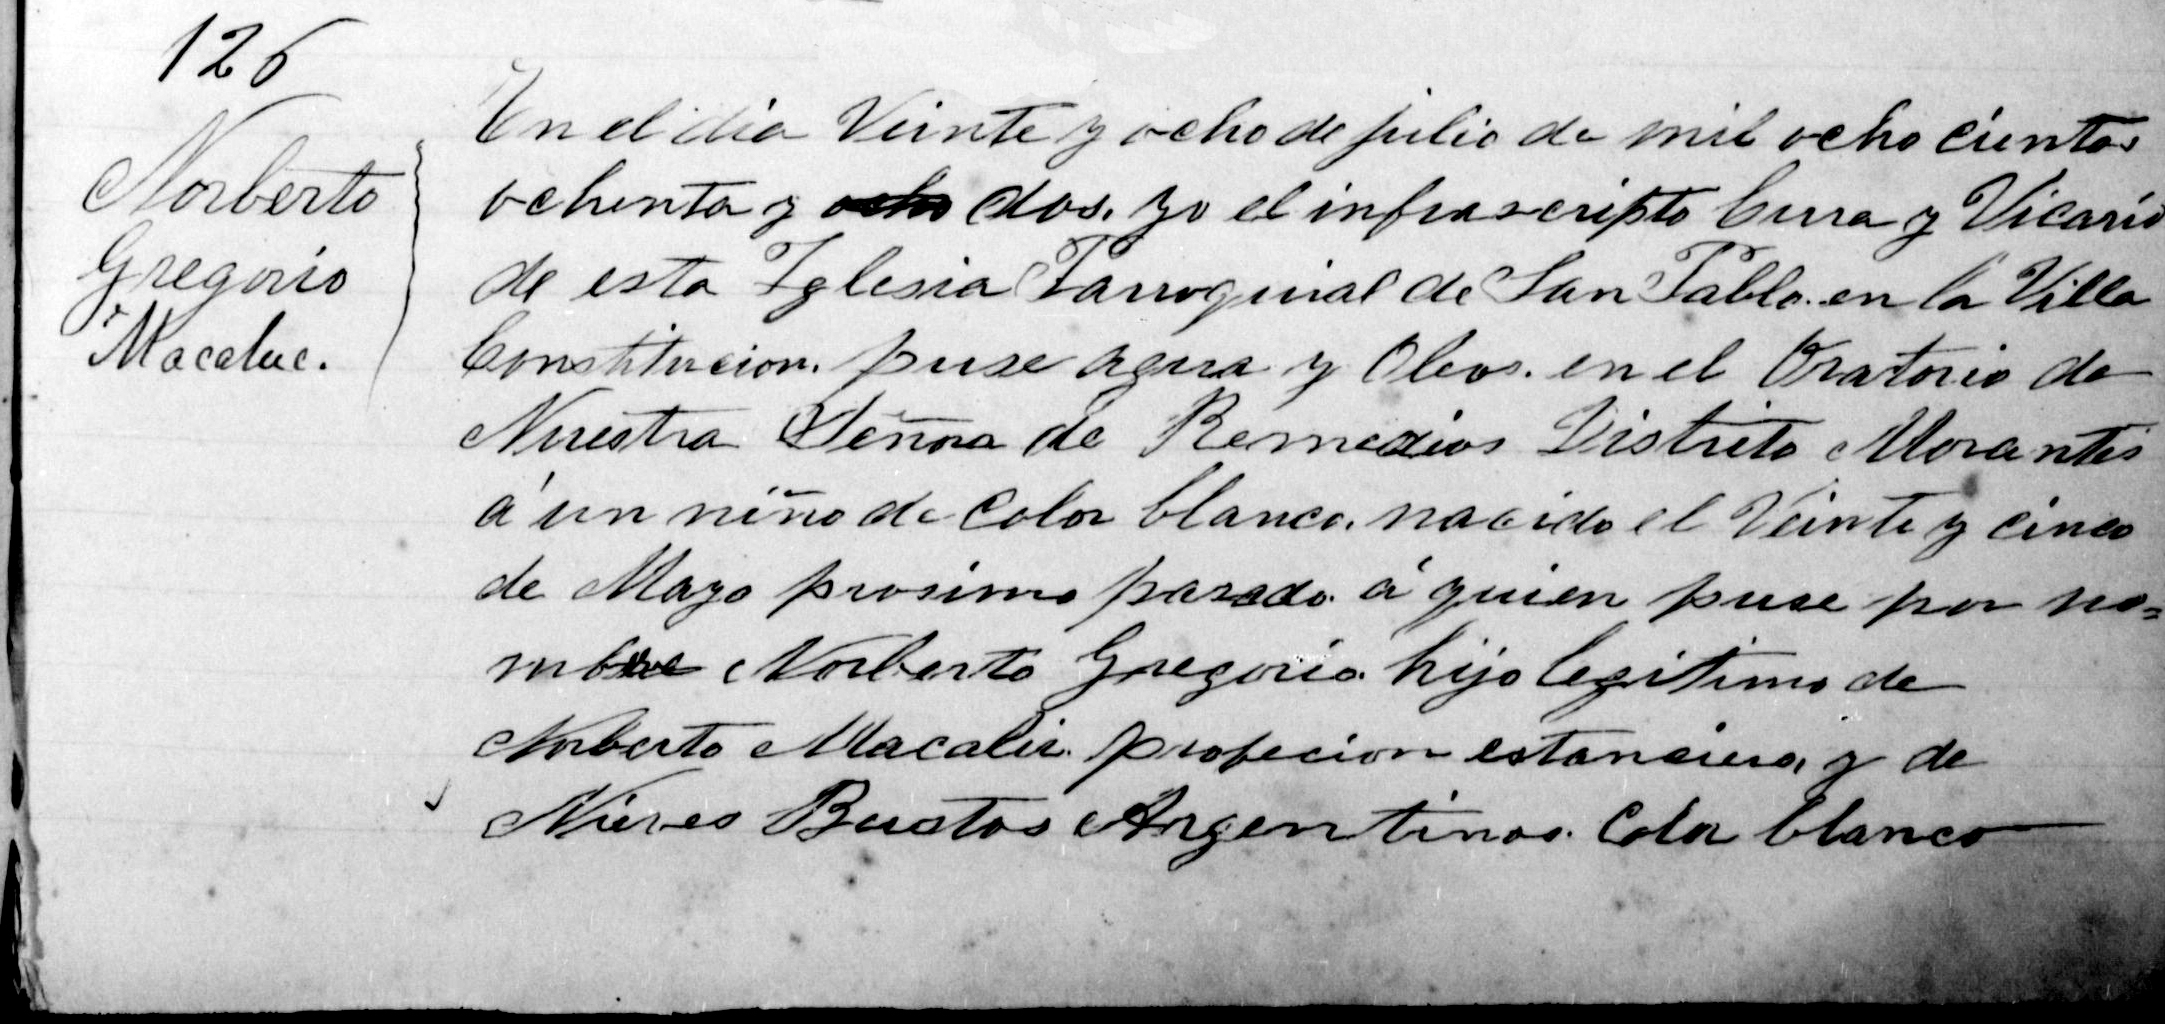 126
Norberto
Gregorio
Macaluc.
En el dia Veinte y ocho de julio de mil ocho cientos
ochenta y ocho dos. yo el infrascripto Cura y Vicario
de esta Iglesia Parroquial de San Pablo. en la Villa
Constitucion. puse agua y Oleos. en el Oratorio de
Nuestra Señora de Remedios Distrito Morantes
á un niño de color blanco. nacido el Veinte y cinco
de Mayo prosimo pasado. á quien puse por no=
mbre Norberto Gregorio. hijo legitimo de
Norberto Macalu. profecion estanciero, y de
Nieves Bustos Argentinos. Color blanco